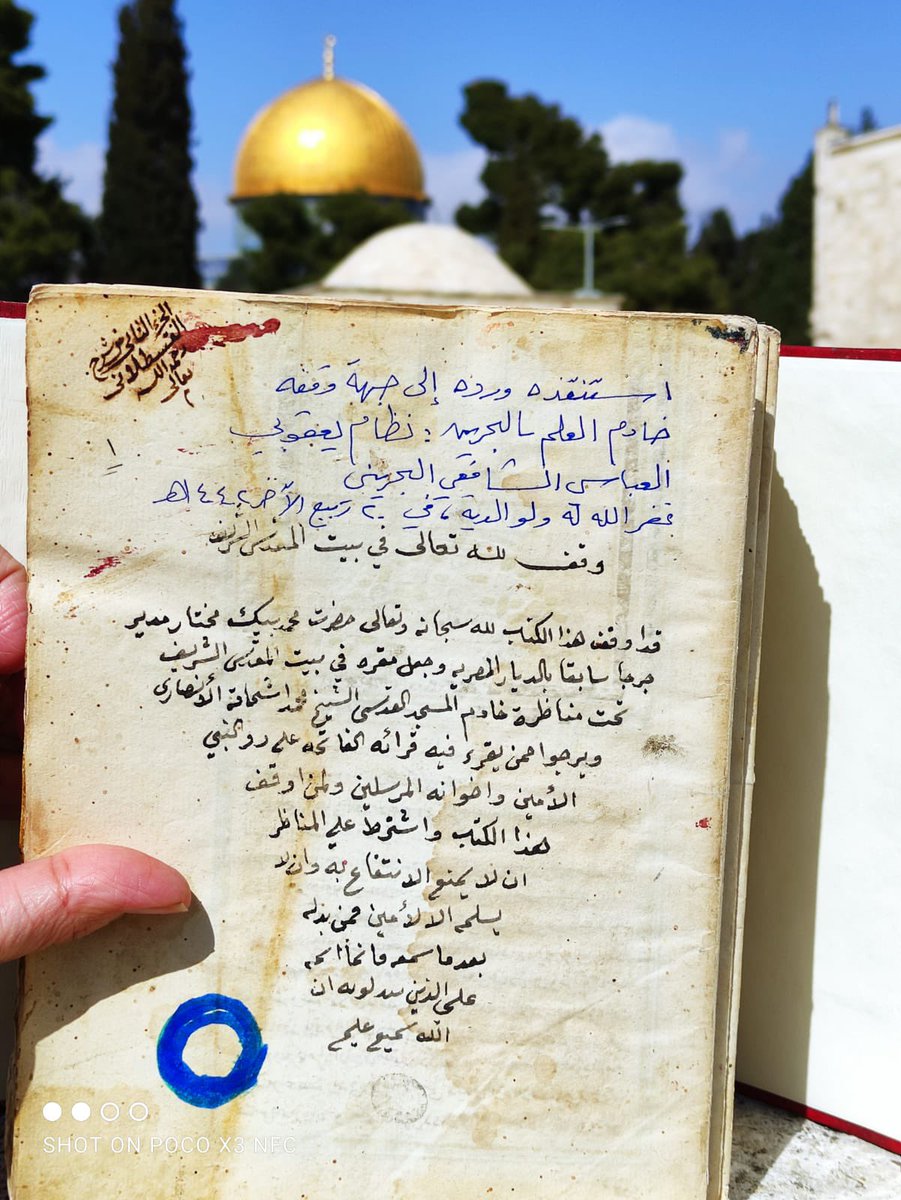 الجزء الثاني من شرح
القسطلاني
رحمه الله
تعالى
١
استنقذه ورده إلى جهة وقفه
خادم العلم بالبحرين: نظام يعقوبي
العباسي الشافعي البحريني
غفر الله له ولوالديه، في ٢٠ ربيع الآخر ١٤٤٢هـ
وقف لله تعالى في بيت المقدس الشريف
قد اوقف هذا الكتب لله سبحانه وتعالى حضرت محمد بيك مختار مدير
جرجا سابقا بالديار المصريه وجعل مقره في بيت المقدس الشريف
تحت مناظرة خادم المسجد القدسي الشيخ محمد اشحادة الأنصاري
ويرجوا ممن يقرء فيه قرائه الفاتحه على روح النبي
الأمين واخوانه المرسلين ولمن اوقف
هذا الكتب واشترط على المناظر
ان لا يمنع الانتفاع به وان لا
يسلمه الا لأمين فمن بدله
بعدما سمعه فانما اثمه
على الذين يبدلونه ان
الله سميع عليم
SHOT ON POCO X3 NFC